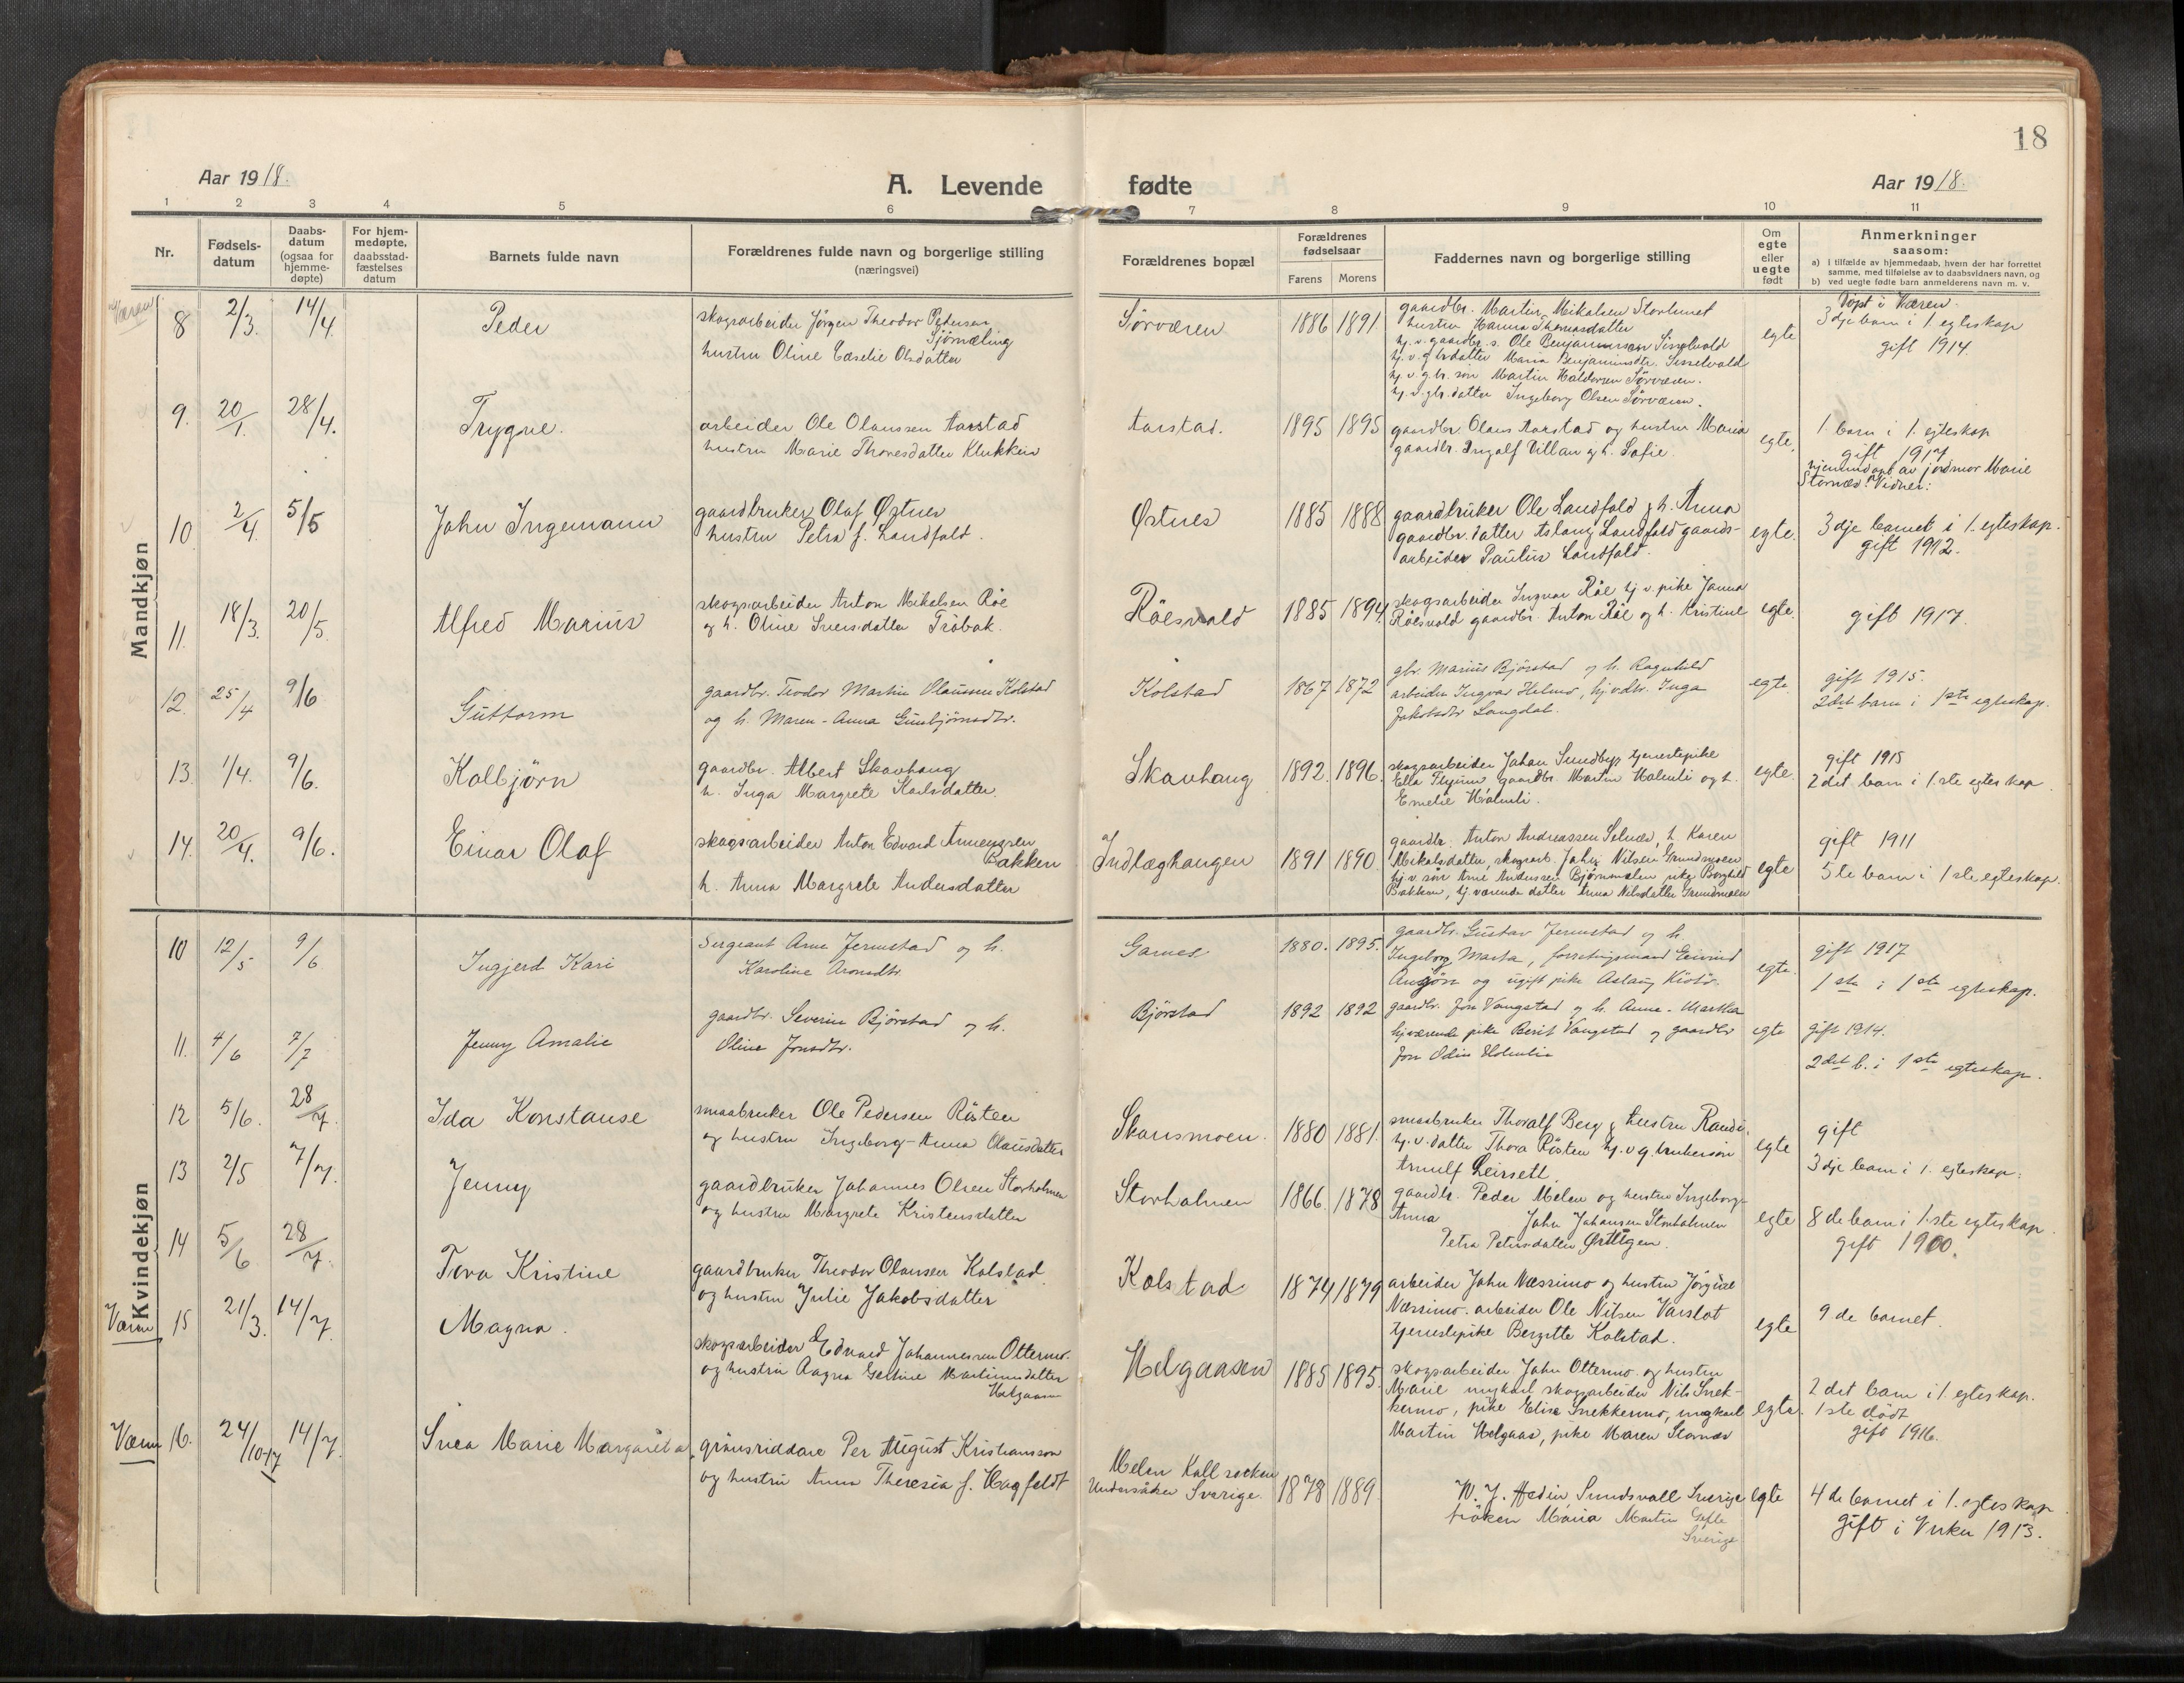 18
Aar 1918.
A. Levende fødte
Aar 1918.
1 2 3 4 5 6 7 8 9 10 11
Nr.
Fødsels-
datum
Daabs-
datum
(ogsaa for
hjemme-
døpte)
For hjem-
medøpte,
daabsstad-
fæstelses
datum
Barnets fulde navn
Forældrenes fulde navn og borgerlige stilling
(næringsvei)
Forældrenes bopæl
Forældrenes
fødselsaar
Farens Morens
Faddernes navn og borgerlige stilling
Om
egte
eller
uegte
født
Anmerkninger
saasom:
a) i tilfælde av hjemmedaab, hvem der har forrettet
samme, med tilføielse av to daabsvidners navn, og
b) ved uegte fødte barn anmelderens navn m. v.
Mandkjøn
Væren
8 2/3. 14/4. Peder
skogsarbeider Jørgen Theodor Pedersen
Bjørnæling
hustru Oline Cæselie Olsdatter
Sørværen 1886 1891
gaardbr. Martin Mikalsen Storlunet
hustru Hanna Thomasdatter
hj. v. gaardbr. s. Ole Benjaminsen Sisselvold
hj. v. gbrdatter Maria Benjaminsdtr. Sisselvold
hj. v. g. br. søn Martin Haldorsen Sørværen.
hj. v. gbr. datter Ingeborg Olsen Sørværen.
egte
Døpt i Væren.
3dje barn i 1. egteskap
gift 1914.
9. 20/1. 28/4. Trygve.
arbeider Ole Olaussen Aarstad
hustru Marie Thoresdatter Klukken
Aarstad. 1895 1895
gaardbr. Olaus Aarstad og hustru Maria
gaardbr. Ingolf Villan og h. Sofie.
egte.
1 barn i 1. egteskap
gift 1917
hjemmedøpt av jordmor Marie
Stornæs. Vidner:
10 2/4. 5/5 John Ingemann
gaardbruker Olaf Østnes
hustru Petra f. Landfald.
Østnes 1885 1888
gaardbruker Ole Landfald og h. Anna
gaardbr. datter Aslaug Landfald gaards-
arbeider Paulus Landfald.
egte.
3dje barnet i 1. egteskap.
gift 1912.
11. 18/3. 20/5. Alfred Marius
skogsarbeider Anton Mikalsen Råe
og h. Oline Iversdatter Trøbak.
Råesvold 1885 1894
skogsarbeider Ingvar Råe hj. v. pike Janna
Råesvold gaardbr. Anton Råe og h. Kristine
egte.
gift 1917.
12. 25/4 9/6 Guttorm
gaardbr. Teodor Martin Olaussen Kolstad
og h. Maren-Anna Gunbjørnsdtr.
Kolstad 1867 1872
gbr. Marius Bjørstad og h. Ragnhild
arbeider Ingvar Helmo, hj.v.dtr. Inga
Jakobsdtr Langdal.
egte
gift 1915.
2det barn i 1ste egteskap.
13. 1/4. 9/6. Kolbjørn
gaardbr. Albert Skavhaug
h. Inga Margrete Karlsdatter.
Skavhaug 1892. 1896.
skogsarbeider Johan Sundby, tjenestepike
Ella Flyum, gaardbr. Martin Holmli og h.
Emelie Holmli.
egte.
gift 1915
2det barn i 1.ste egteskap.
14. 20/4. 9/6. Einar Olaf
skogsarbeider Anton Edvard Annenssen
Bakken
h. Anna Margrete Andersdatter
Indlæghaugen 1891 1890.
gaardbr. Anton Andreassen Selnæs, h. Karen
Mikalsdatter, skogarb. John Nilsen Grundmoen
hj. v. søn Arne Andersen Bjørnmælen pike Borghild
Bakken, hj. værende datter Anna Nilsdatter Grundmoen
egte
gift 1911
5te barn i 1ste egteskap.
Kvindekjøn
10 12/5 9/6 Ingjerd Kari
Sergeant Arne Jermstad og h.
Karoline Aronsdtr.
Garnes 1880. 1895.
gaardbr. Gustav Jermstad og h.
Ingeborg Marta, forretningsmand Eivind
og ugift pike Aslaug
egte.
gift 1917
1ste i 1ste egteskap.
11. 4/6 7/7 Jenny Amalie
gaardbr. Severin Bjørstad og h.
Oline Jonsdtr.
Bjørstad 1892 1892
gaardbr. Jon Vangstad og h. Anne-Martha
hjværende pike Berit Vangstad og gaardbr
Jon Odin Holmlie
egte
gift 1914.
2det b. i 1ste egteskap.
12 5/6. 28/7. Ida Konstanse
smaabruker Ole Pedersen Røsten
og hustru Ingeborg-Anna Olausdatter
Skansmoen. 1880 1881.
smaabruker Thoralf Berg og hustru Randi.
hj. v. datter Thora Røsten hj. v. g. brukersøn
Arnulf Leirsett.
egte
gift
3dje barn i 1. egteskap.
13 2/5 7/7. Jenny
gaardbruker Johannes Olsen Storholmen
og hustru Margrete Kristensdatter
Storholmen 1866. 1878
gaardbr. Peder Melen og hustru Ingeborg-
Anna John Johansen Storholmen
Petra Petersdatter
egte
8de barn i 1.ste egteskap.
gift 1900.
14 5/6 28/7. Tora Kristine
gaardbruker Theodor Olausen Kolstad.
og hustru Julie Jakobsdatter
Kolstad 1874 1879
arbeider John Næssimo og hustru Jørgine
Næssimo. arbeider Ole Nilsen Varslot
tjenestepike Bergitte Kolstad.
egte
9de barnet.
Væren 15 21/3. 14/7. Magna.
skogsarbeider Edvard Johannessen Ottermo.
og hustru Aagna Gestine Martinusdatter
Helgaasen
Helgaasen 1885 1895
skogsarbeider John Ottermo og hustru
Marie ungkarl skogsarbeider Nils Snek-
kermo, pike Elise Snekkermo, ungkarl
Martin Helgaas, pike Maren Stornæs
egte.
2det barn i 1. egteskap.
1ste dødt
gift 1916.
Væren 16. 24/10 17 14/7. Svea Marie Margareta
gränsriddare Per August Kristiansson
og hustru Anna Theresia f. Hagfeldt
Melen Kall socken
Undersåker Sverige. 1878 1889.
W. J. Hedin Sundsvall Sverige
fröken Maria Martin Gefle
Sverige
egte
4de barnet i 1. egteskap
gift i Vuku 1913.